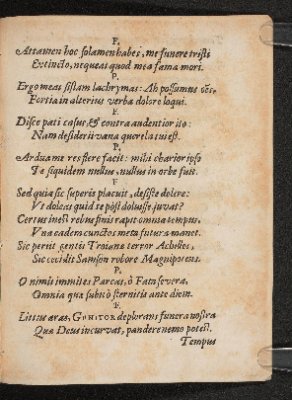 F.
Attamen hoc solamen habes, me funere tristi
Extincto, nequeat quod mea fama mori.
P.
Ergo meas sistam lachrymas: Ah possumus oēs,
Fortia in alterius verba dolore loqui.
F.
Disce pati casus, & contra audentior ito:
Nam desiderii vana querela tui est.
P.
Arduam res fiere facit: mihi charior ipso
Te siquidem nullus, nullus in orbe fuit.
F.
Sed quia sic superis placuit, desiste dolere:
Vt doleas quid te pòst doluisse juvat?
Certus inest rebus finis rapit omnia tempus,
Vna eadem cunctos meta futura manet.
Sic periit gentis Troianæ terror Achilles,
Sic cecidit Samson robore Magnipotens.
P.
O nimis immites Parcas, ô Fata severa,
Omnia quæ subitò sternitis ante diem.
F.
Littus aras, GENITOR deplorans funera nostra
Quæ Deus incurvat, pandere nemo potest.
Tempus